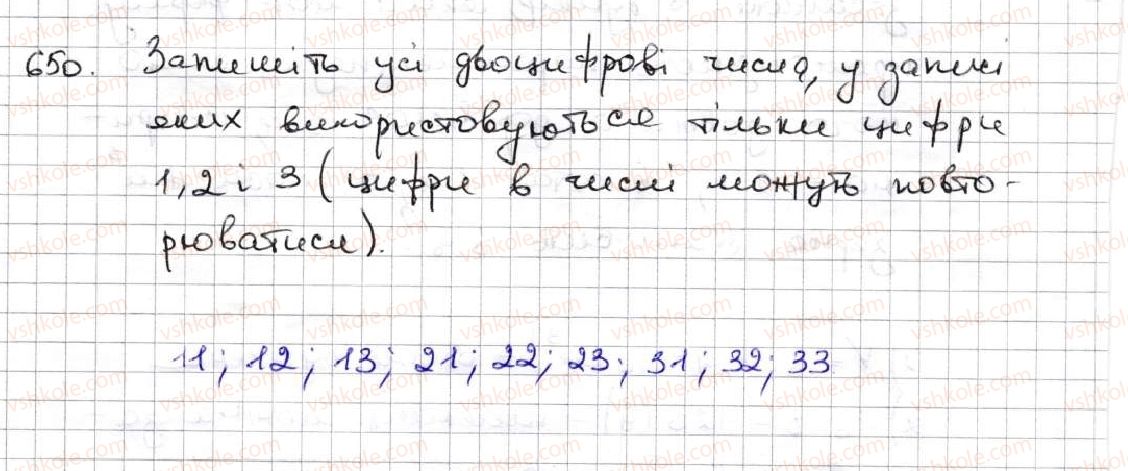 650. Запишіть усі двоцифрові числа, у записі
яких використовуються тільки цифри
1, 2 і 3 (цифри в числі можуть повто-
рюватися).
11; 12; 13; 21; 22; 23; 31; 32; 33